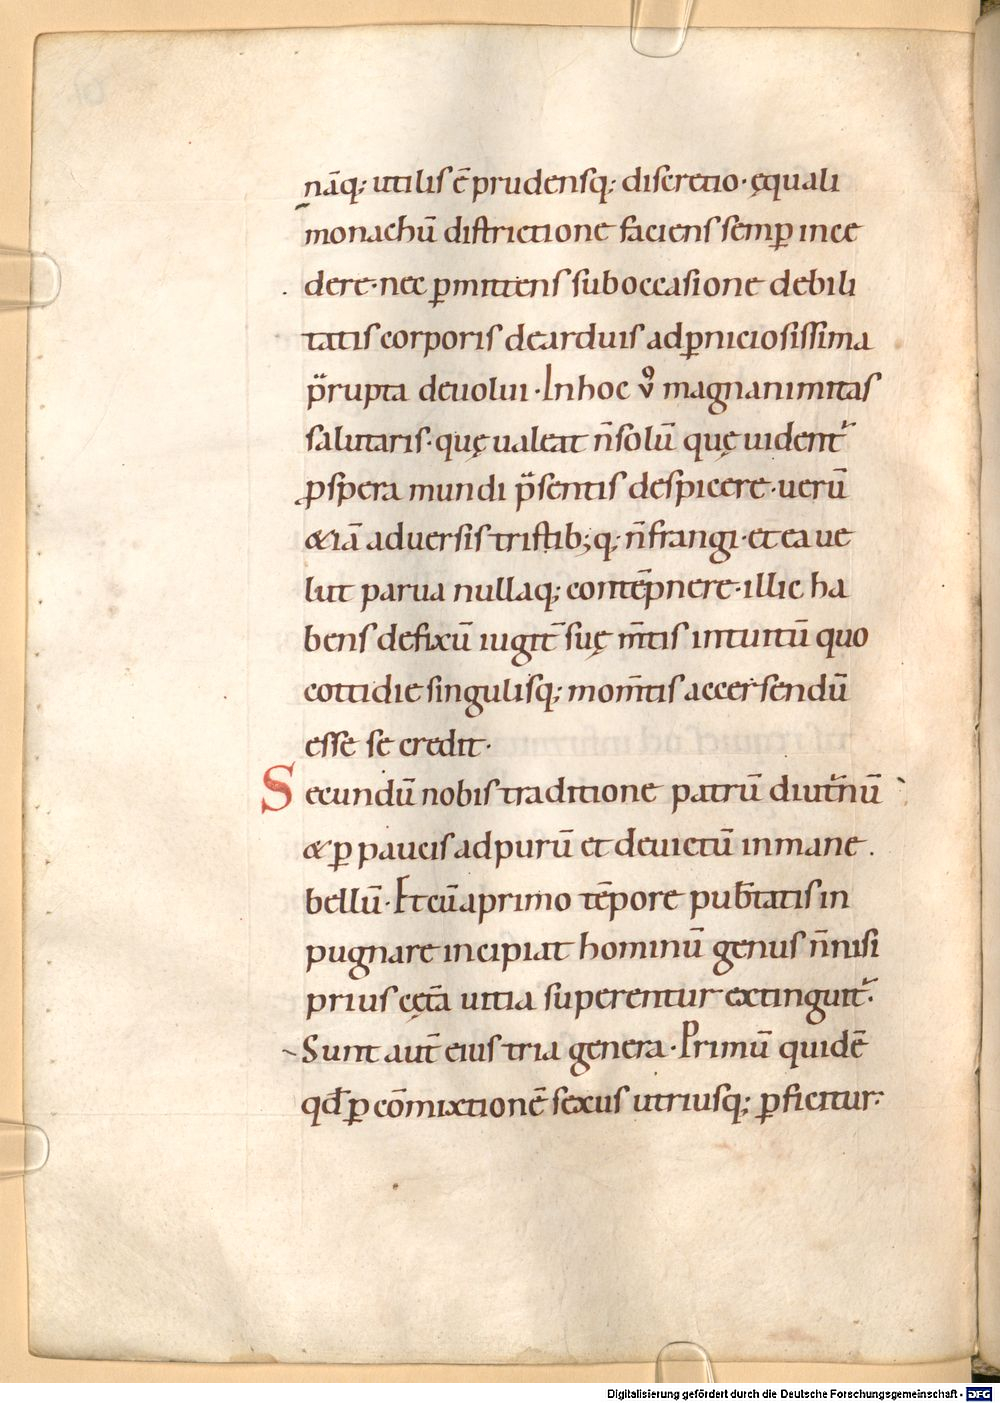 nāq; utilis ē prudensq; discretio · ęquali
monachū districtione faciens semꝑ ince
dere · nec ꝑmittens sub occasione debili
tatis corporis de arduis ad ꝑniciosissima
p̈rupta deuolui · In hoc v̊ magnanimitas
salutaris · quę ualeat n̄ solū quę uident᷑
ꝓspera mundi p̈sentis despicere · uerū
&iā aduersis tristib; q; n̄ frangi · et ea ue
lut parua nullaq; contēpnere · illic ha
bens defixū iugit̄ suę m̄tis intuitū quo
cottidie singulisq; mom̄tis accersendū
esse se credit ·
Secundū nobis traditione patrū diut᷑nū
& ꝑ paucis ad purū et deuictū inmane .
bellū · Et cū a primo tēpore pub̄tatis in
pugnare incipiat hominū genus n̄ nisi
prius cęt̄a uitia superentur extinguit᷑ ·
Sunt aut̄ eius tria genera · Primū quidē
qđ ꝑ cōmixtionē sexus utriusq; ꝑficitur ·
Digitalisierung gefördert durch die Deutsche Forschungsgemeinschaft - DFG